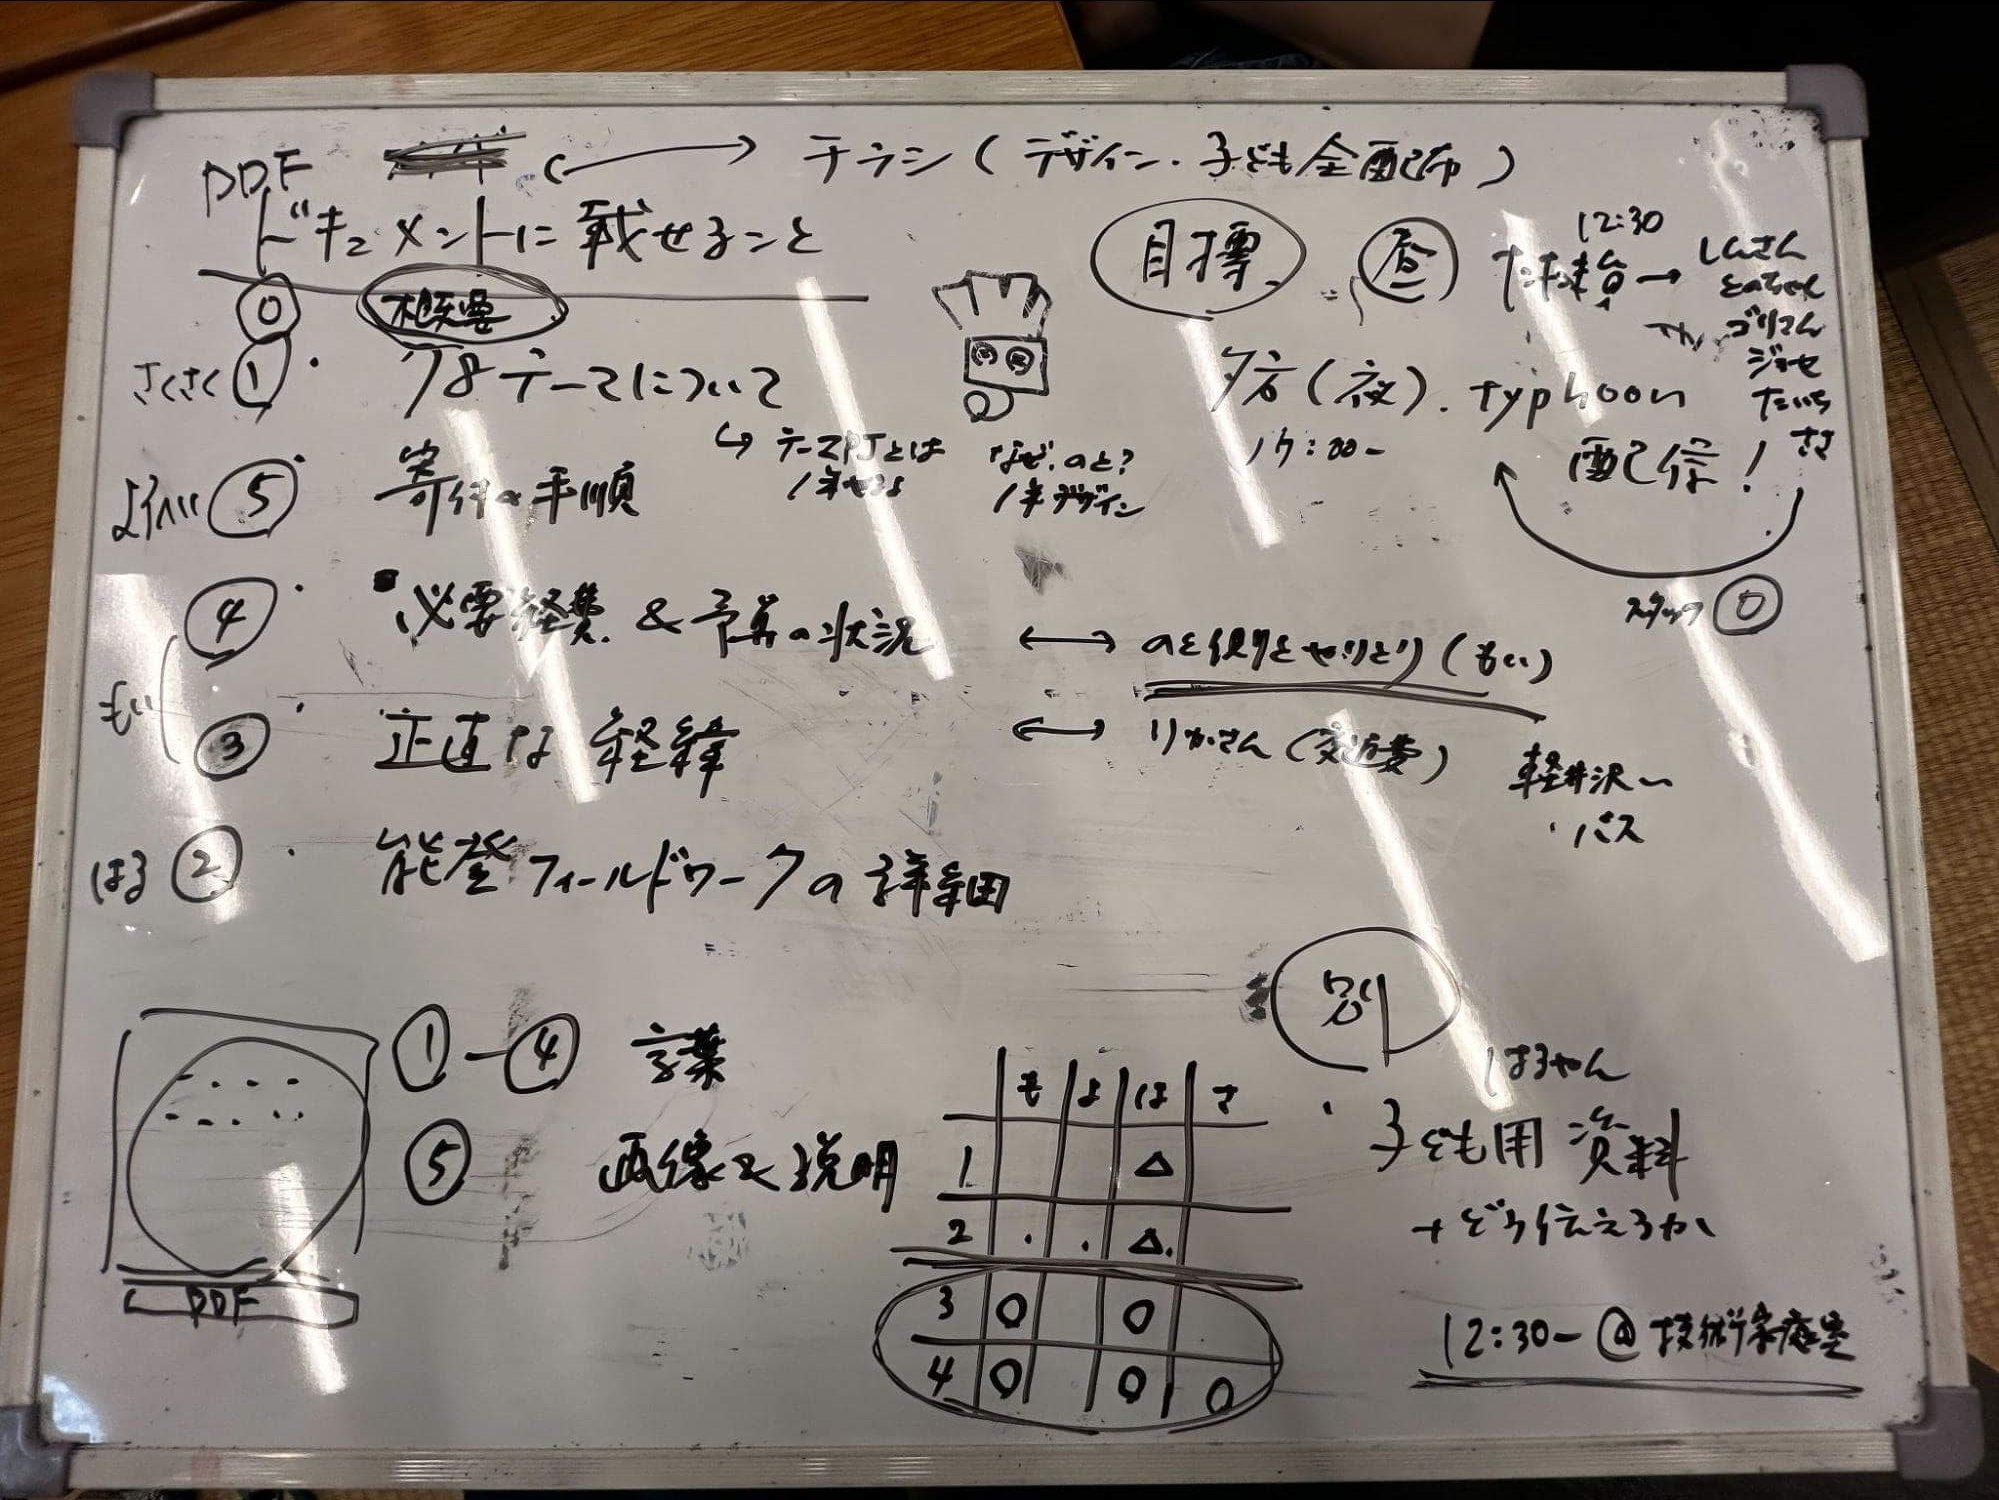 PDF ⟷ チラシ(デザイン・子ども全配布)
ドキュメントに載せること
⓪ 概要
さくさく ① ・ 78テーマについて
↳ テーマPJとは
なぜ、のと?
1年デザイン
ようへい ⑤ ・ 寄付の手順
もい
④ ・ 必要経費 & 予算の状況 ⟷ のと側とやりとり(もい)
③ ・ 正直な経緯 ⟷ りかさん(交通費)
軽井沢〜
バス
はる ② ・ 能登フィールドワークの詳細
目標
昼
12:30
→
しんさん
とのちゃん
ゴリさん
ジョセ
たいち
ささ
夕方(夜). typhoon
17:00-
配信!
スタッフ ⓪
PDF
①-④ 言葉
⑤ 画像と説明
も よ は さ
1 △
2 ・ ・ △.
3 ○ ○
4 ○ ○ ○
別
はるやん
・子ども用資料
+どう伝えるか
12:30-@技術家庭室